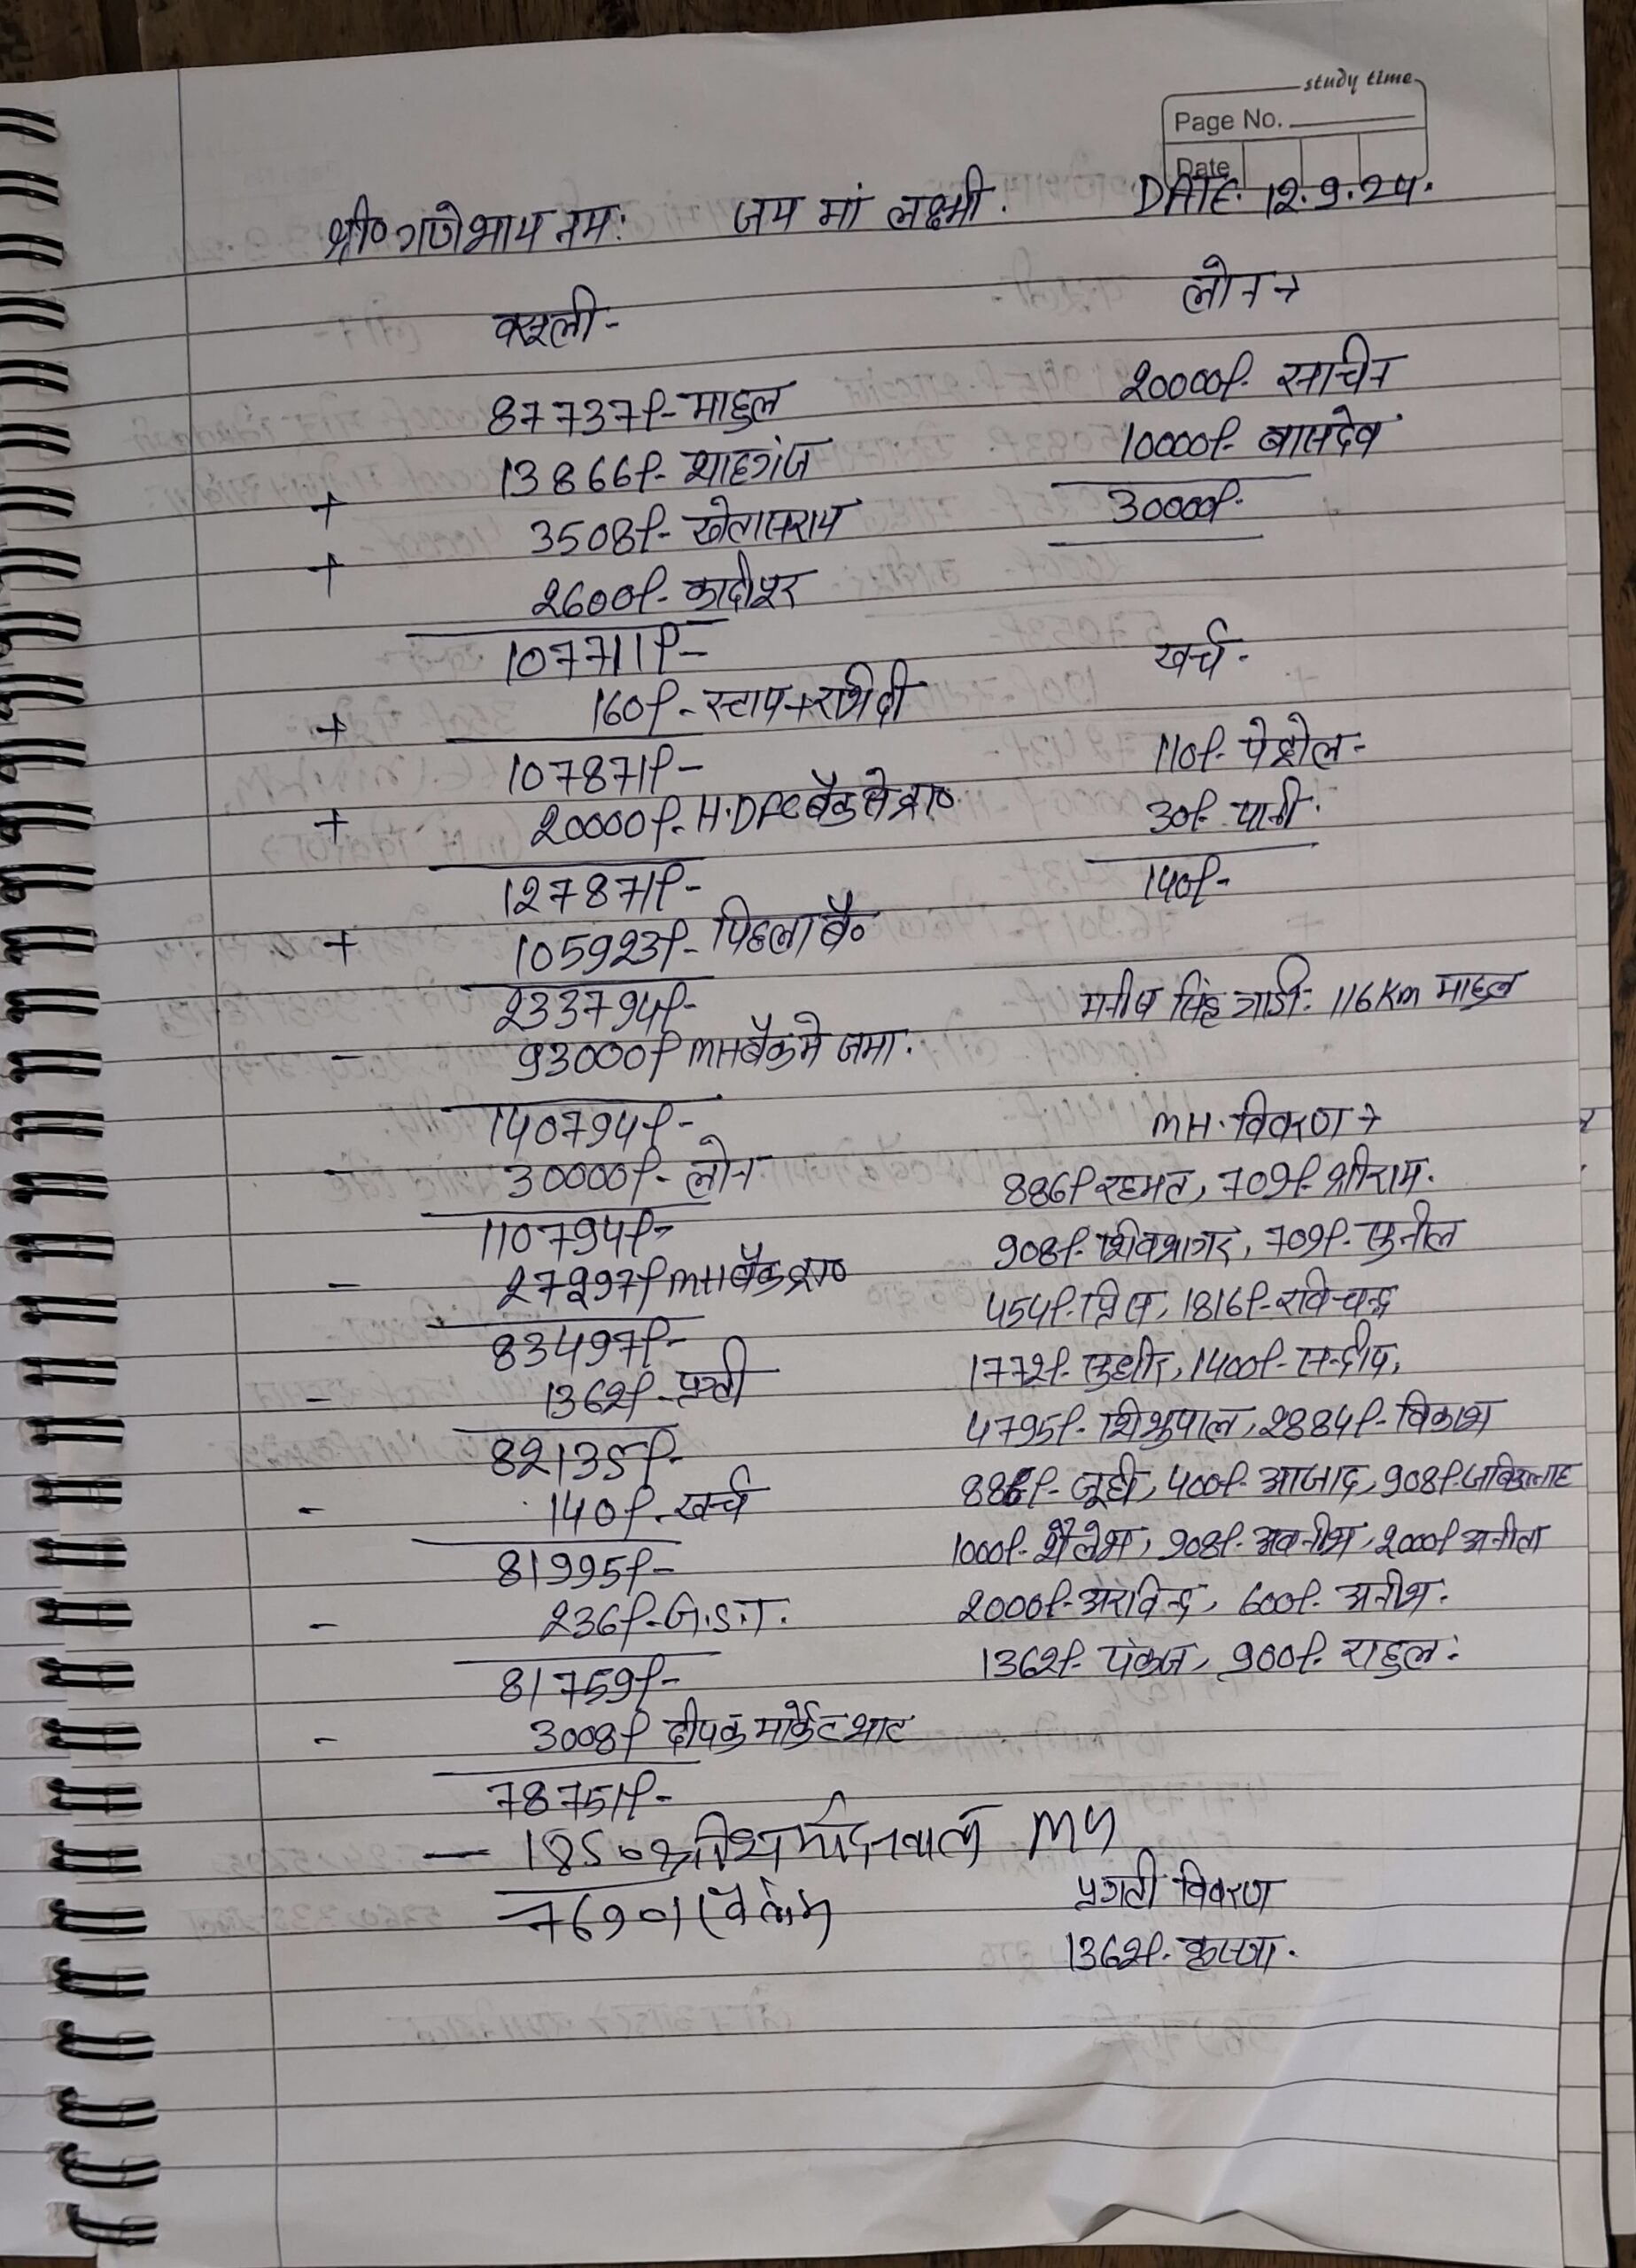 study time
Page No.
Date
श्री० गणेशाय नमः जय मां लक्ष्मी. DATE. 12.9.24.
वसूली-
87737/- माहुल
13866/- शाहगंज
+ 3508/- खेतासराय
+ 2600/- कादीपुर
107711/-
+ 160/- स्टाप+रशीदी
107871/-
+ 20000/- H.DFC बैंक से प्रा०
127871/-
+ 105923/- पिछला बै०
233794/-
- 93000/- MH बैंक मे जमा.
140794/-
- 30000/- लोन
110794/-
- 27297/- MH बैंक प्रा०
83497/-
- 1362/- प्रगती
82135/-
- 140/- खर्च
81995/-
- 236/- G.S.T.
81759/-
- 3008/- दीपक मार्केट शाट
78751/-
- 1850
76901 (बैलेंस)
लोन →
20000/- सचिन
10000/- बासदेव
30000/-
खर्च-
110/- पेट्रोल-
30/- पानी.
140/-
मनीष सिंह गाडी: 116 Km माहुल
MH. विवरण →
886/- रहमत, 709/- श्रीराम.
908/- शिवशागर, 709/- सुनील
454/- प्रिंस, 1816/- रविचन्द्र
1772/- सुधीर, 1400/- सन्दीप,
4795/- शिशुपाल, 2884/- विकाश
886/- जूही, 400/- आजाद, 908/-
1000/- शैलेश, 908/- अवनीश, 2000/- अनीता
2000/- अरविन्द, 600/- अनीश.
1362/- पंकज, 900/- राहुल.
प्रगती विवरण
1362/-